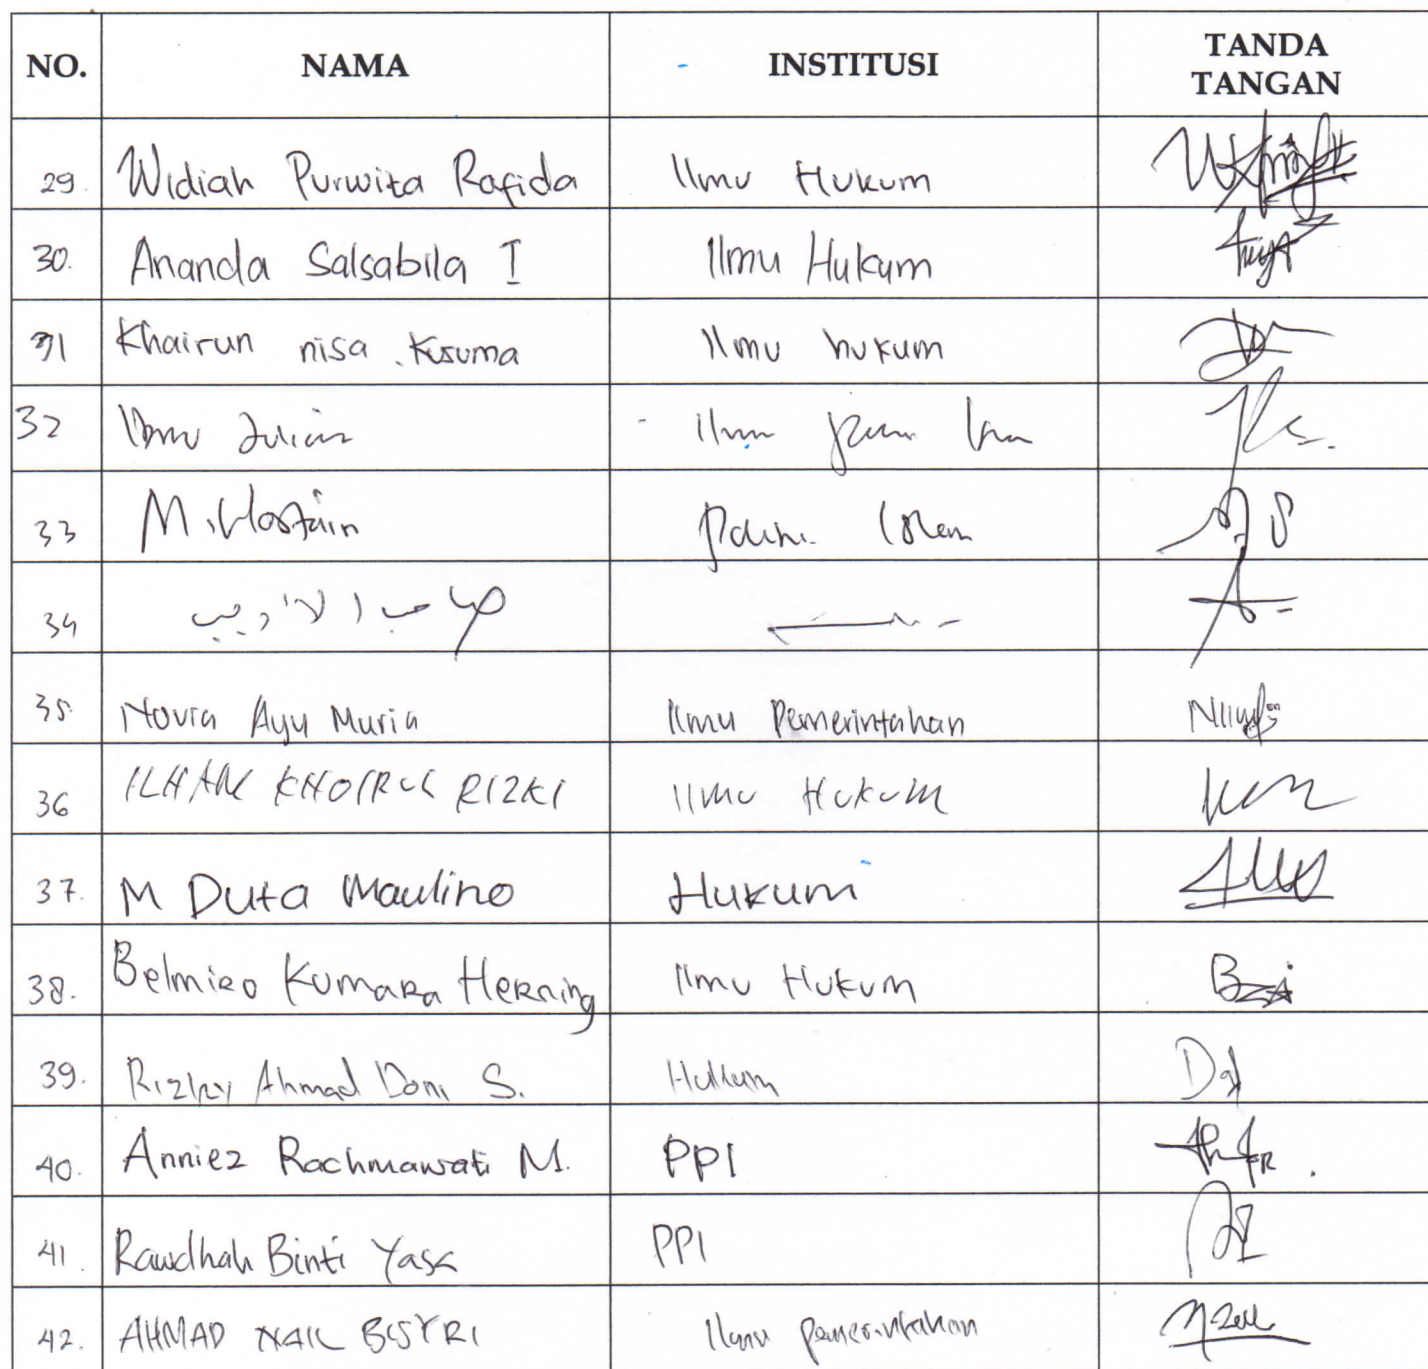 NO. NAMA INSTITUSI TANDA TANGAN
29. Widiah Purwita Rafida Ilmu Hukum
30. Ananda Salsabila I Ilmu Hukum
31 Khairun nisa .Kusuma Ilmu hukum
32 Ibnu Julian Ilmu
33 M.
34
35. Novia Ayu Muria Ilmu Pemerintahan
36 ILHAM KHOIRUL RIZKI Ilmu Hukum
37. M Duta Maulino Hukum
38. Belmiro Kumara Herning Ilmu Hukum
39. Rizky Ahmad Doni S. Hukum
40. Anniez Rachmawati M. PPI
41. Rawdhah Binti Yasa PPI
42. AHMAD NAIL BISYRI Ilmu pemerintahan